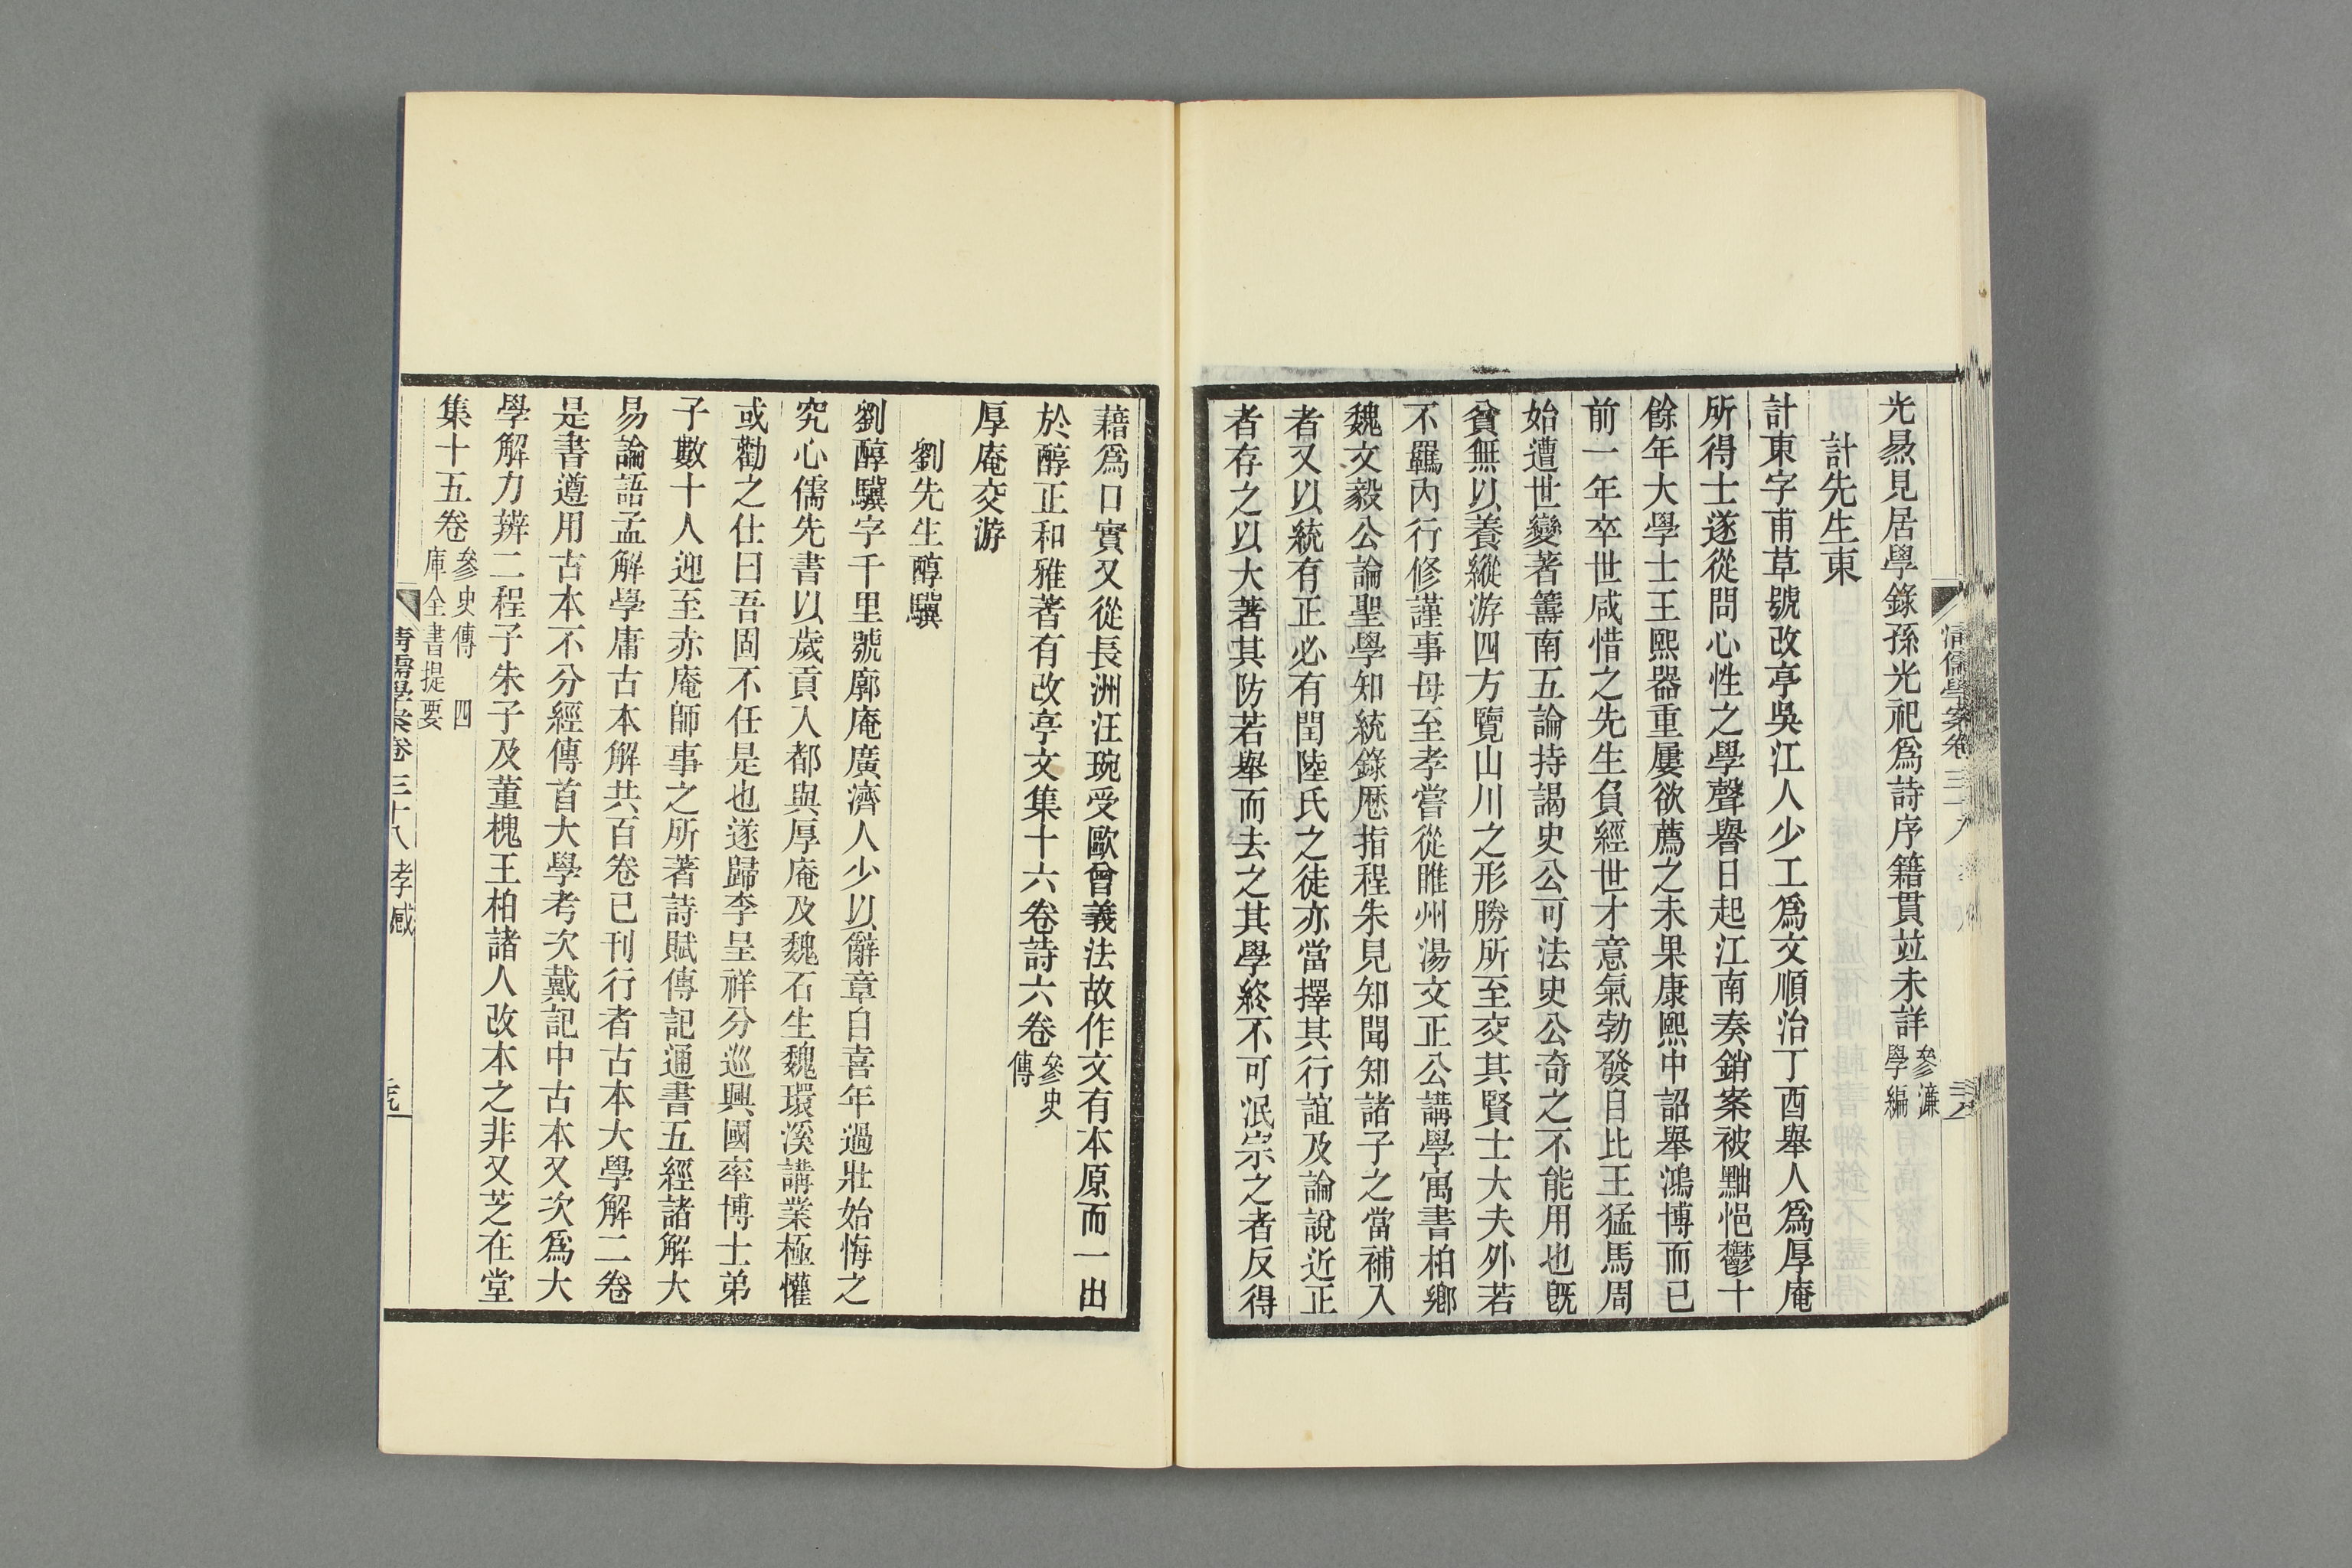 光㬎見居學錄孫光祀爲詩序籍貫竝未詳參濂學編
計先生東
計東字甫草號改亭吳江人少工爲文順治丁酉舉人爲厚庵
所得士遂從問心性之學聲譽日起江南奏銷案被黜悒鬱十
餘年大學士王熙器重屢欲薦之未果康熙中詔舉鴻博而已
前一年卒世咸惜之先生負經世才意氣勃發自比王猛馬周
始遭世變著籌南五論持謁史公可法史公奇之不能用也旣
貧無以養縱游四方覽山川之形勝所至交其賢士大夫外若
不羈內行修謹事母至孝嘗從睢州湯文正公講學寓書柏鄉
魏文毅公論聖學知統錄歷指程朱見知聞知諸子之當補入
者又以統有正必有閏陸氏之徒亦當擇其行誼及論說近正
者存之以大著其防若舉而去之其學終不可泯宗之者反得
藉爲口實又從長洲汪琬受歐曾義法故作文有本原而一出
於醇正和雅著有改亭文集十六卷詩六卷參史傳
厚庵交游
劉先生醇驥
劉醇驥字千里號廓庵廣濟人少以辭章自喜年過壯始悔之
究心儒先書以歲貢入都與厚庵及魏石生魏環溪講業極懽
或勸之仕曰吾固不任是也遂歸李呈祥分巡興國率博士弟
子數十人迎至赤庵師事之所著詩賦傳記通書五經諸解大
易論語孟解學庸古本解共百卷已刊行者古本大學解二卷
是書遵用古本不分經傳首大學考次戴記中古本又次爲大
學解力辨二程子朱子及董槐王柏諸人改本之非又芝在堂
集十五卷參史傳 四庫全書提要
清儒學案卷三十八 孝感